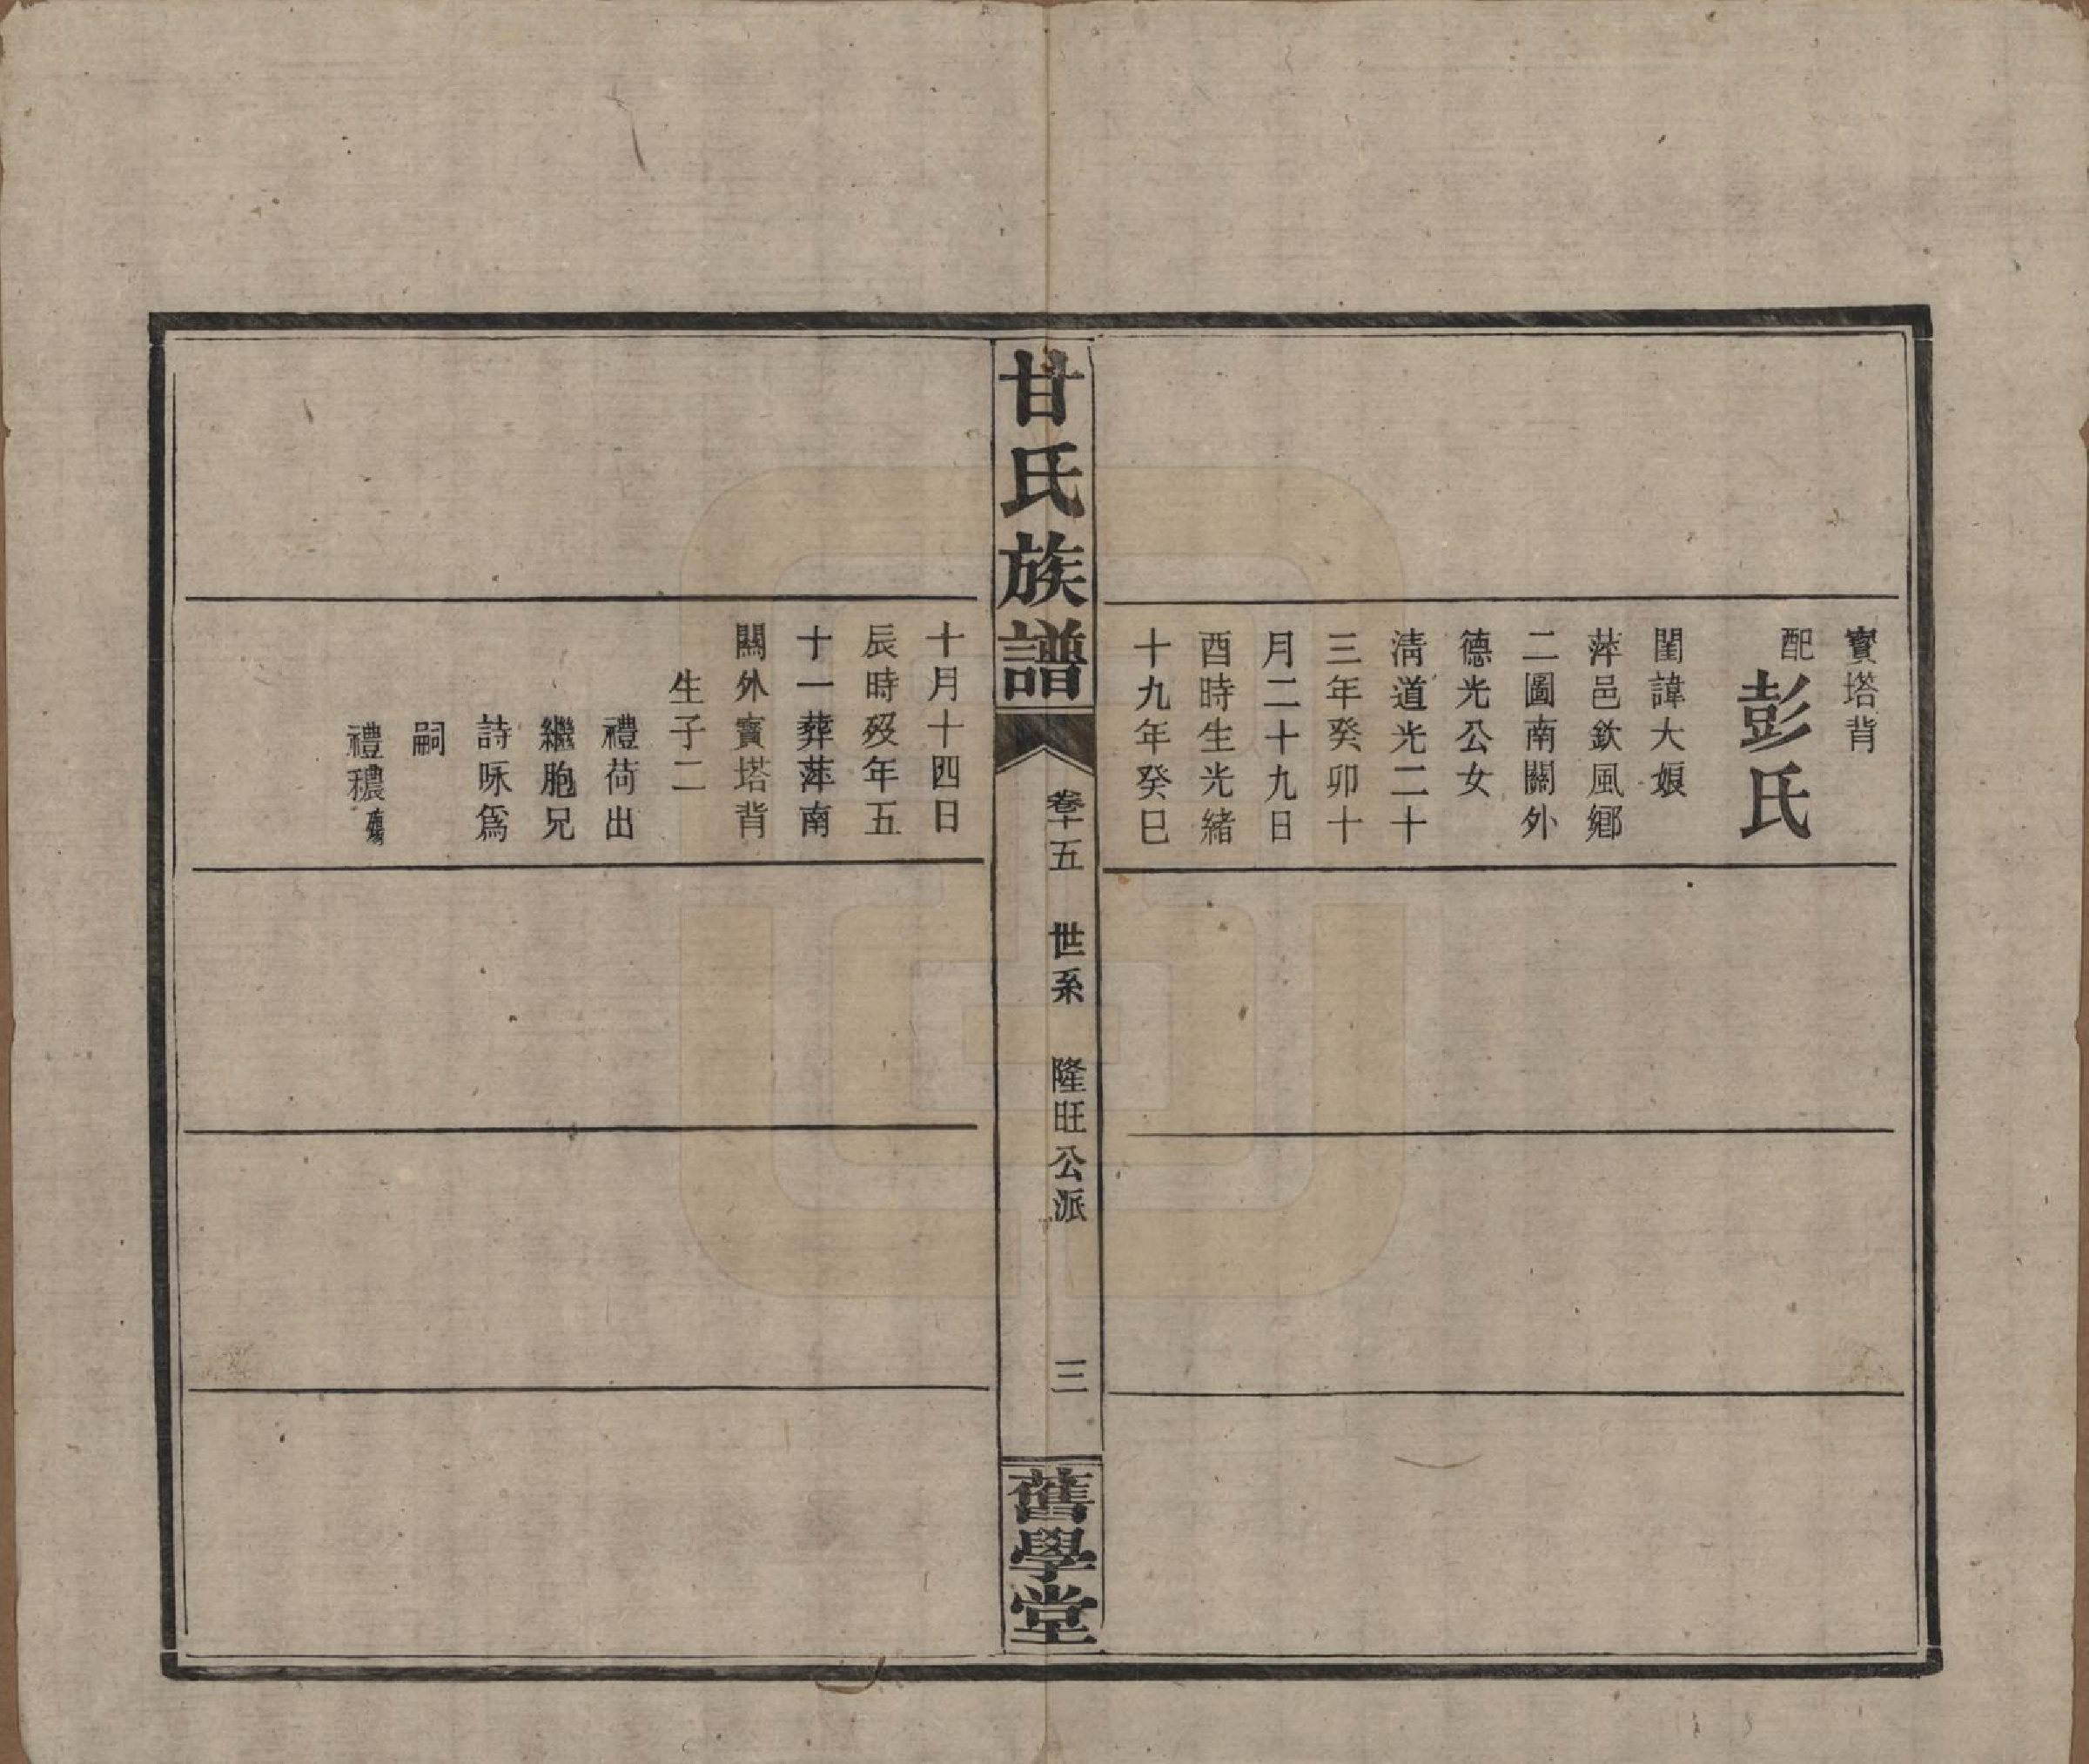 寳塔背
配
彭氏
閨諱大娘
萍邑欽風鄉
二圖南關外
德光公女
淸道光二十
三年癸卯十
月二十九日
酉時生光緒
十九年癸巳
甘氏族譜
卷十五 世系 隆旺公派 三
舊學堂
十月十四日
辰時歿年五
十一葬萍南
關外寳塔背
生子二
禮荷出
繼胞兄
詩咏爲
嗣
禮穠